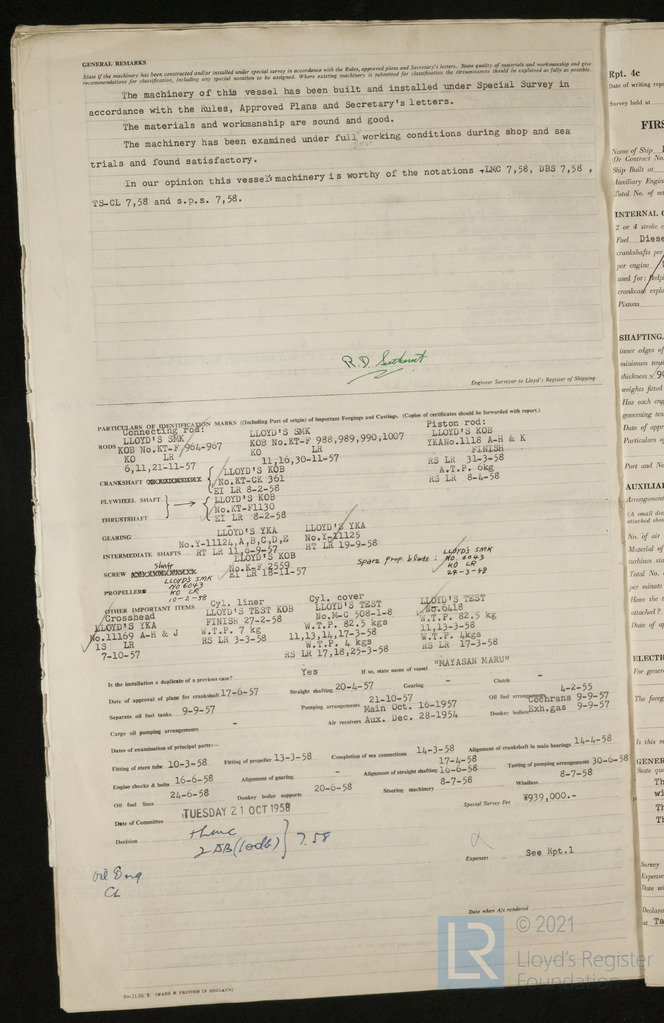 GENERAL REMARKS
State if the machinery has been constructed and/or installed under special survey in accordance with the Rules, approved plans and Secretary's letters. State quality of materials and workmanship and give
recommendations for classification, including any special notation to be assigned. Where existing machinery is submitted for classification the circumstances should be explained as fully as possible.
The machinery of this vessel has been built and installed under Special Survey in
accordance with the Rules, Approved Plans and Secretary's letters.
The materials and workmanship are sound and good.
The machinery has been examined under full working conditions during shop and sea
trials and found satisfactory.
In our opinion this vessel's machinery is worthy of the notations +LMC 7,58, DBS 7,58 ,
TS-CL 7,58 and s.p.s. 7,58.
Engineer Surveyor to Lloyd's Register of Shipping.
PARTICULARS OF IDENTIFICATION MARKS (Including Port of origin) of Important Forgings and Castings. (Copies of certificates should be forwarded with report.)
Connecting rod: Piston rod:
LLOYD'S SMK LLOYD'S SMK LLOYD'S KOB
RODS KOB No.KT-F 964-967 KOB No.KT-F 988,989,990,1007 YKANo.1118 A-H & K
KO LR KO LR FINISH
6,11,21-11-57 11,16,30-11-57 RS LR 31-3-58
CRANKSHAFT LLOYD'S KOB A.T.P. 6kg
No.KT-CK 361 RS LR 8-4-58
EI LR 8-2-58
FLYWHEEL SHAFT LLOYD'S KOB
No.KT-F1130
THRUSTSHAFT EI LR 8-2-58
GEARING LLOYD'S YKA LLOYD'S YKA
No.Y-11124,A,B,C,D,E No.Y-11125
INTERMEDIATE SHAFTS RT LR 11,6-9-57 HT LR 19-9-58
LLOYD'S KOB Spare prop. blade : LLOYD'S SMK
SCREW Shaft No.K-F 2559 No. 6043
EI LR 18-11-57 KO LR
LLOYD'S SMK 24-3-58
No 6043
PROPELLER KO LR
10-2-58
OTHER IMPORTANT ITEMS Cyl. liner Cyl. cover
Crosshead LLOYD'S TEST KOB LLOYD'S TEST LLOYD'S TEST
LLOYD'S YKA FINISH 27-2-58 No.M-C 508-1-8 No.6418
No.11169 A-H & J W.T.P. 7 kg W.T.P. 82.5 kgs W.T.P. 82.5 kg
IS LR RS LR 3-3-58 11,13,14,17-3-58 11,13-3-58
7-10-57 W.T.P. 4 kgs W.T.P. 4kgs
RS LR 17,18,25-3-58 RS LR 17-3-58
Is the installation a duplicate of a previous case? Yes If so, state name of vessel "MAYASAN MARU"
Date of approval of plans for crankshaft 17-6-57 Straight shafting 20-4-57 Gearing - Clutch -
Separate oil fuel tanks 9-9-57 Pumping arrangements 21-10-57 Main Oct. 16-1957 Oil fuel arrangements 4-2-55
Cargo oil pumping arrangements - Air receivers Aux. Dec. 28-1954 Donkey boilers Cochrans 9-9-57
Exh.gas 9-9-57
Dates of examination of principal parts:—
Fitting of stern tube 10-3-58 Fitting of propeller 13-3-58 Completion of sea connections 14-3-58 Alignment of crankshaft in main bearings 14-4-58
Engine chocks & bolts 16-6-58 Alignment of gearing - Alignment of straight shafting 17-4-58 16-6-58 Testing of pumping arrangements 30-6-58
Oil fuel lines 24-6-58 Donkey boiler supports 20-6-58 Steering machinery 8-7-58 Windlass 8-7-58
Date of Committee TUESDAY 21 OCT 1958 Special Survey Fee ¥939,000.-
Decision
7.58
Expenses See Rpt.1
Oil Eng
CL
Date when A/c rendered
© 2021
LR
Lloyd's Register
Foundation
(MADE & PRINTED IN ENGLAND)
Rpt. 4c
Date of writing
Survey held at
FIRS
Name of Ship
(Or Contract No.
Ship Built at
Auxiliary Engin
Total No. of
INTERNAL C
2 or 4 stroke
Fuel Diese
crankshafts per
per engine
used for:
crankcase explo
Pistons
SHAFTING.
inner edges of
thickness
weights fitted
Has each eng
Date of appr
Particulars o
Port and No
AUXILIA
Arrangement
(A small dia
attached sho
No. of air
Material of
turbines
Total No.
per minute
Have the t
attached ?
Date of ap
ELECTR
For gener
The foreg
Is this
GENER
State qu
Th
wi
Th
Th
Survey
Expense
Date
Declara
at Ta